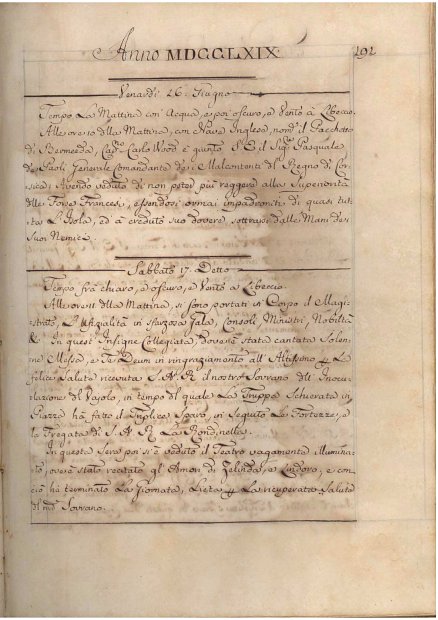 Anno MDCCLXIX
191
Venardì 16. Giugno
Tempo La Mattina con Acqua, e poi oscuro, e Vento à Libeccio.
Alle ore 10 della Mattina, con Nave Inglese, nomª il Pacchetto
di Bermuda, Capⁿ Carlo Wood è giunto S. E. il Sigʳ Pasquale
de Paoli Generale Comandante de: Malcontenti del Regno di Cor-
sica: Avendo veduto di non poter più reggere alla Superiorità
delle Forse Francesi, essendosi ormai impadroniti di quasi tut-
ta L'Isola, ed à creduto suo dovere, sottrarsi dalle Mani de
Suoi Nemici.
Sabbato 17. Detto
Tempo frà chiaro, e oscuro, e Vento à Libeccio
Alle ore 11 della Mattina, si sono portati in Corpo il Magi-
strato, La Uffizialità in sfarzosa Gala, Consoli, Ministri, Nobiltà
& In quest' Insigne Collegiata, dove è stata cantata Solen-
ne Messa, e Te Deum in ringraziamento all' Altissimo p La
felice Salute ricevuta S. A. R. il nostro Sovrano dell Inocu-
lazione del Vajolo, in tempo del quale La Truppa Schierata in
Piazza hà fatto il Triplice Sparo, in Seguito Le Fortezze, e
la Fregata di S. A. R. La Rondinella.
In questa Sera poi si è veduto il Teatro vagamente Illumina-
to, ove è stato recitato gl' Amori di Zelinda, e Lindoro, e con
ciò hà terminato La Giornata, Lieta p La ricuperata Salute
del nrō Sovrano.